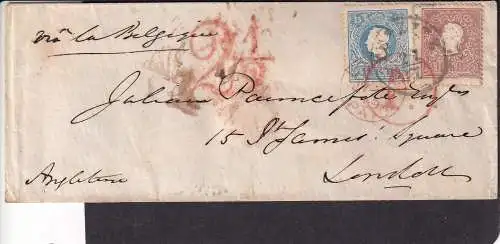 viâ la Belgique
Julian Pauncefote Esqre
15 St James' Square
London
Angleterre